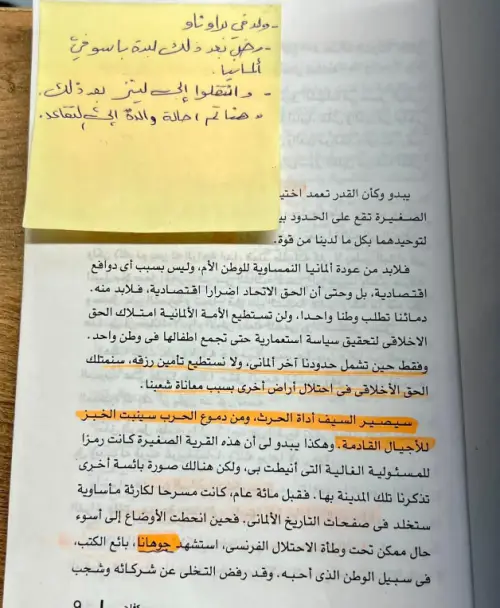 - ولد في براوناو
- رحل بعد ذلك لبلدة باسو في
ألمانيا.
- وانتقلوا إلى لينز بعد ذلك.
وهنا تم احالة والدة إلى التقاعد.
يبدو وكأن القدر تعمد اختي
الصغيرة تقع على الحدود بي
لتوحيدهما بكل ما لدينا من قوة.
فلابد من عودة ألمانيا النمساوية للوطن الأم، وليس بسبب أى دوافع
اقتصادية، بل وحتى أن الحق الاتحاد اضرارا اقتصادية، فلابد منه.
دمائنا تطلب وطنا واحدا، ولن تستطيع الأمة الألمانية امتلاك الحق
الاخلاقى لتحقيق سياسة استعمارية حتى تجمع اطفالها فى وطن واحد.
وفقط حين تشمل حدودنا آخر ألمانى، ولا نستطيع تأمين رزقه، سنمتلك
الحق الأخلاقى فى احتلال أراض أخرى بسبب معاناة شعبنا.
سيصير السيف أداة الحرث، ومن دموع الحرب سينبت الخبز
للأجيال القادمة. وهكذا يبدو لى أن هذه القرية الصغيرة كانت رمزا
للمسئولية الغالية التى أنيطت بى، ولكن هنالك صورة بائسة أخرى
تذكرنا تلك المدينة بها. فقبل مائة عام، كانت مسرحا لكارثة مأساوية
ستخلد فى صفحات التاريخ الألمانى. فحين انحطت الأوضاع إلى أسوء
حال ممكن تحت وطأة الاحتلال الفرنسى، استشهد جوهانا، بائع الكتب،
فى سبيل الوطن الذى أحبه. وقد رفض التخلى عن شركائه وشجب